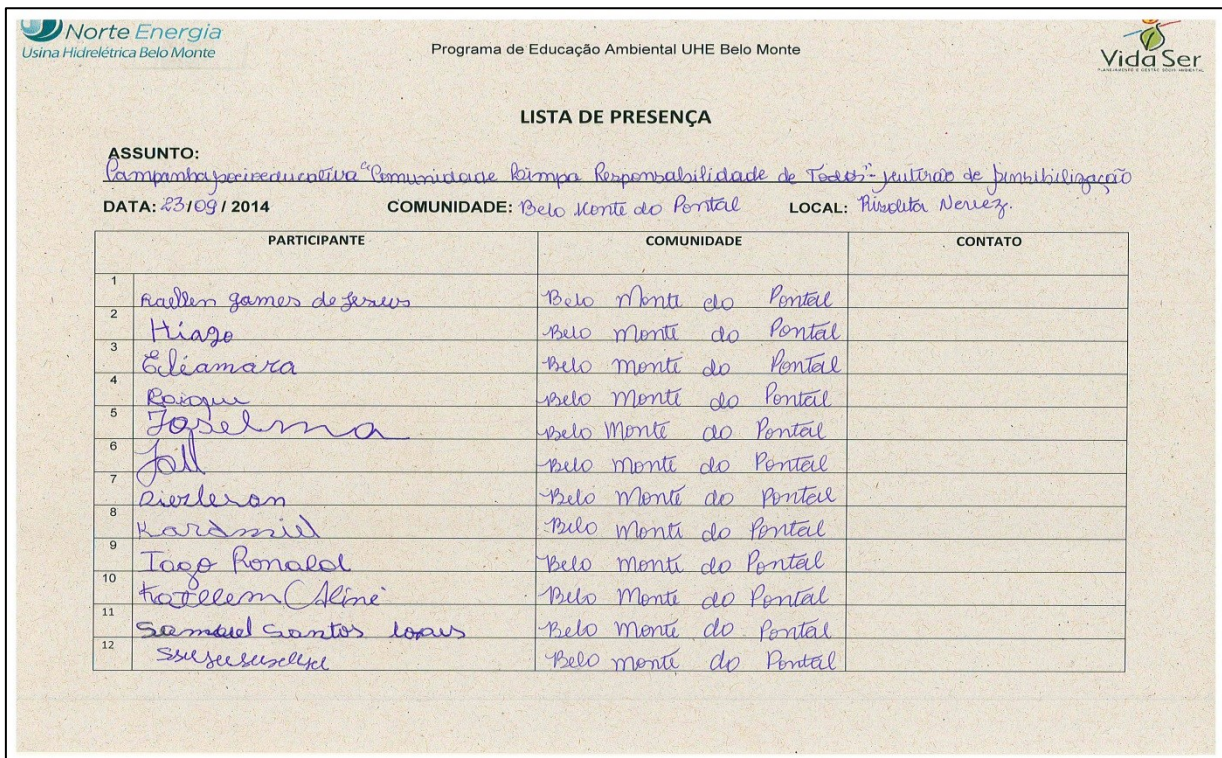 Norte Energia
Usina Hidrelétrica Belo Monte
Programa de Educação Ambiental UHE Belo Monte
Vida Ser
LISTA DE PRESENÇA
ASSUNTO:
Campanha socioeducativa "Comunidade Limpa Responsabilidade de Todos" - mutirão de sensibilização
DATA: 23/09/2014 COMUNIDADE: Belo Monte do Pontal LOCAL:
PARTICIPANTE COMUNIDADE CONTATO
1 Raellen gomes de Jesus Belo Monte do Pontal
2 Hiago Belo Monte do Pontal
3 Eliamara Belo Monte do Pontal
4 Belo Monte do Pontal
5 Joselma Belo Monte do Pontal
6 Belo Monte do Pontal
7 Belo Monte do Pontal
8 Belo Monte do Pontal
9 Iago Ronald Belo Monte do Pontal
10 Katellem Aline Belo Monte do Pontal
11 Samuel Santos Belo Monte do Pontal
12 Belo Monte do Pontal